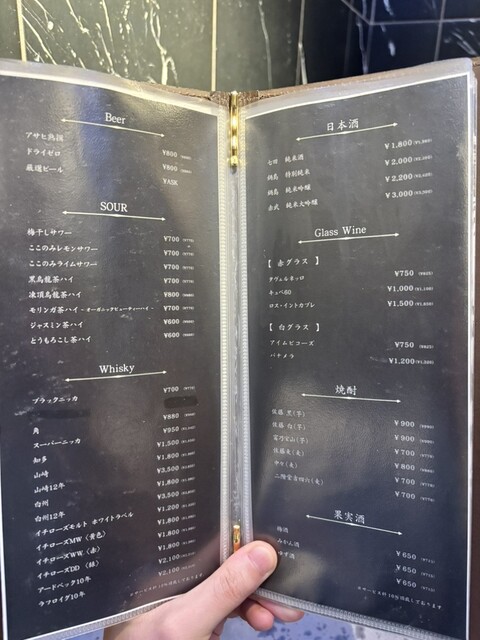 Beer
アサヒ熟撰 ¥800
ドライゼロ ¥800
厳選ビール ¥ASK
SOUR
梅干しサワー ¥700 (¥770)
ここのみレモンサワー ¥700 (¥770)
ここのみライムサワー ¥700 (¥770)
黒烏龍茶ハイ ¥700 (¥770)
凍頂烏龍茶ハイ ¥800 (¥880)
モリンガ茶ハイ - オーガニックビューティーハイ - ¥700 (¥770)
ジャスミン茶ハイ ¥600 (¥660)
とうもろこし茶ハイ ¥600 (¥660)
Whisky
ブラックニッカ ¥700 (¥770)
角 ¥880
スーパーニッカ ¥950
知多 ¥1,500
山崎 ¥1,800
山崎12年 ¥3,500
白州 ¥1,800
白州12年 ¥3,500
イチローズモルト ホワイトラベル ¥1,200
イチローズMW〈黄色〉 ¥1,800
イチローズWW〈赤〉 ¥1,800
イチローズDD 〈緑〉 ¥1,800
アードベック10年 ¥2,100
ラフロイグ10年 ¥2,100
日本酒
七田 純米酒 ¥1,800
鍋島 特別純米 ¥2,000
鍋島 純米吟醸 ¥2,200
赤武 純米大吟醸 ¥3,000
Glass Wine
【 赤グラス 】
タヴェルネッロ ¥750
キュベ60 ¥1,000
ロス・イントカブレ ¥1,500
【 白グラス 】
アイムビコーズ ¥750
パナメラ ¥1,200
焼酎
佐藤 黒(芋) ¥900
佐藤 白(芋) ¥900
富乃宝山(芋) ¥700
佐藤麦(麦) ¥800
中々(麦) ¥700
二階堂吉四六(麦) ¥700
果実酒
梅酒 ¥650
みかん酒 ¥650
ゆず酒 ¥650
※サービス料 10%頂戴しております
※サービス料 10%頂戴しております